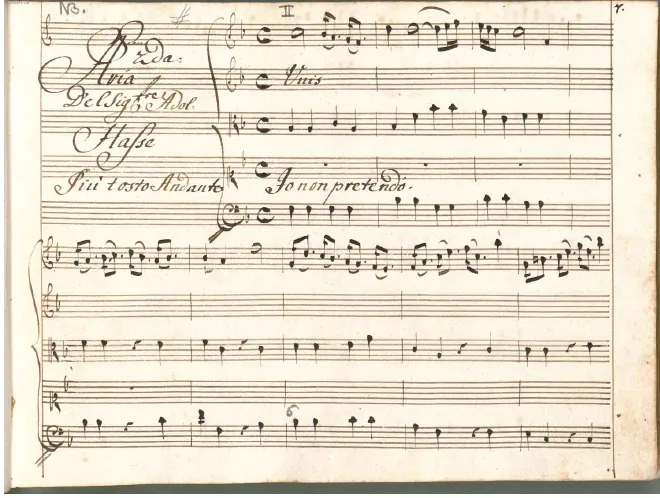 NB. II 7.
2da.
Aria
Unis
Del Sigre Adol.
Hasse
Più tosto Andante Io non pretendo.
6